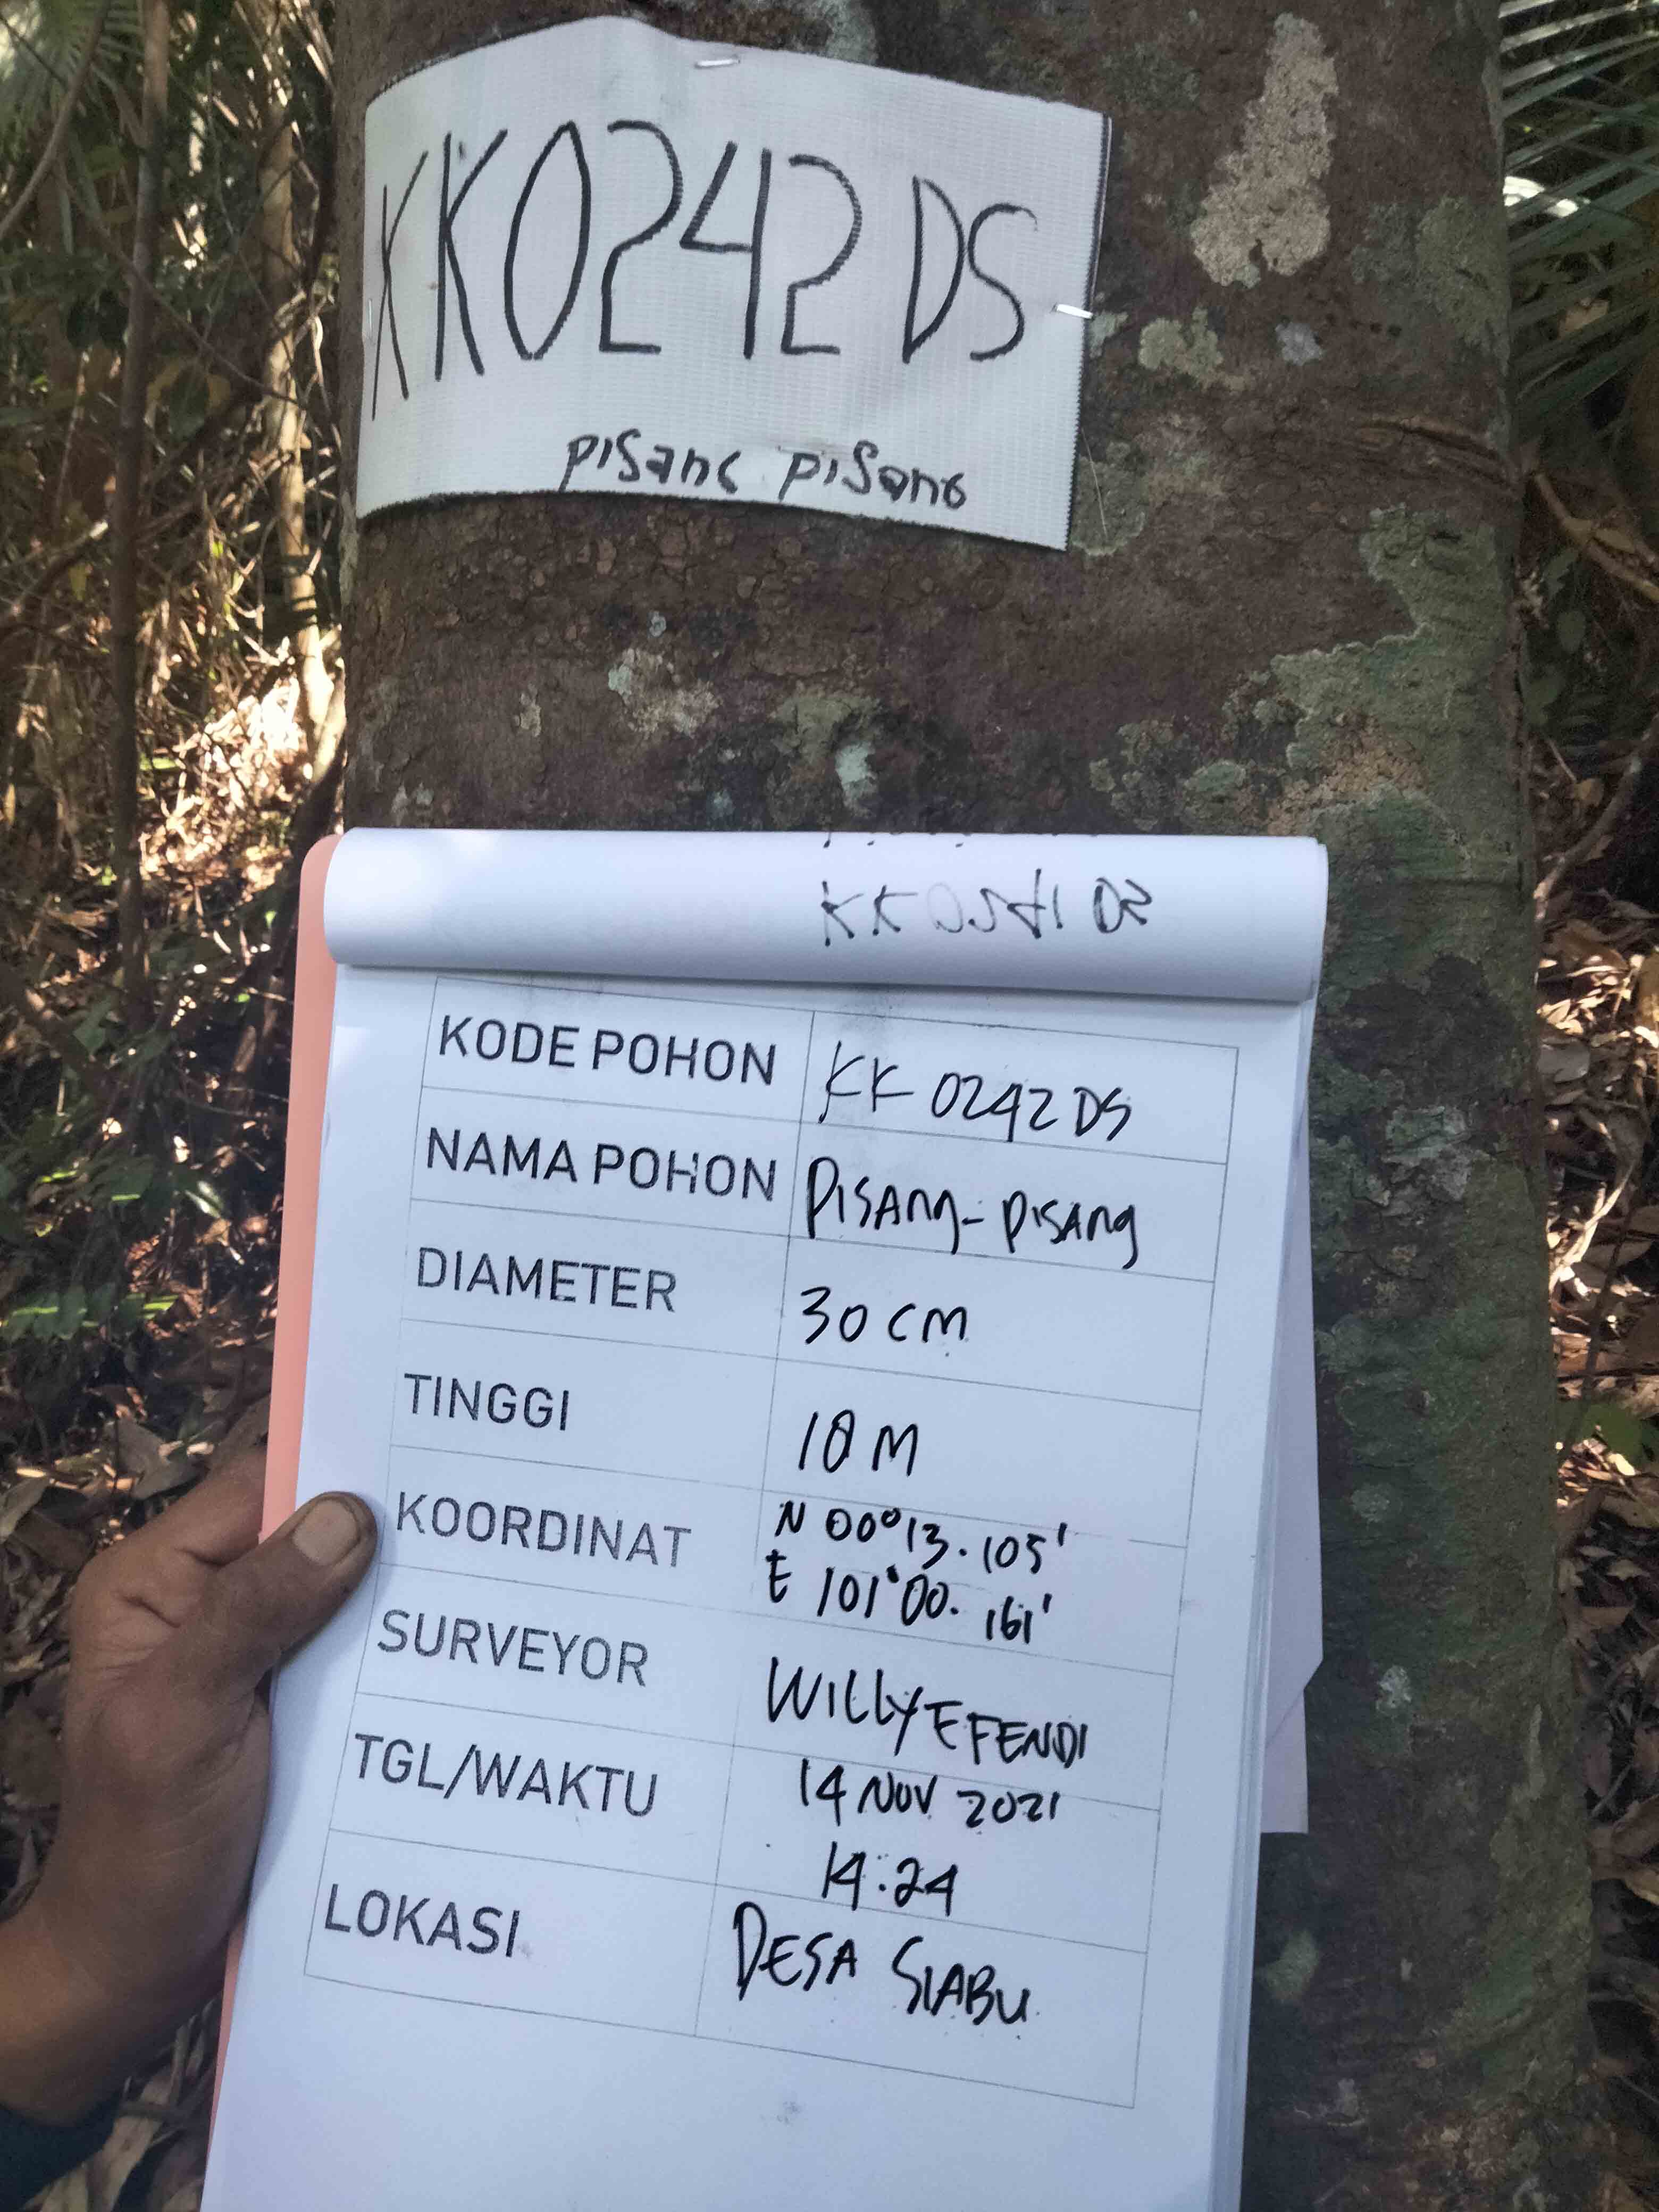 KK0242DS
PISANG PISANG
KODE POHON KK 0242 DS
NAMA POHON PISANG-PISANG
DIAMETER 30 CM
TINGGI 18 M
KOORDINAT N 00°13.105'
E 101°00.161'
SURVEYOR WILLY EFENDI
TGL/WAKTU 14 NOV 2021
14:24
LOKASI DESA SIABU